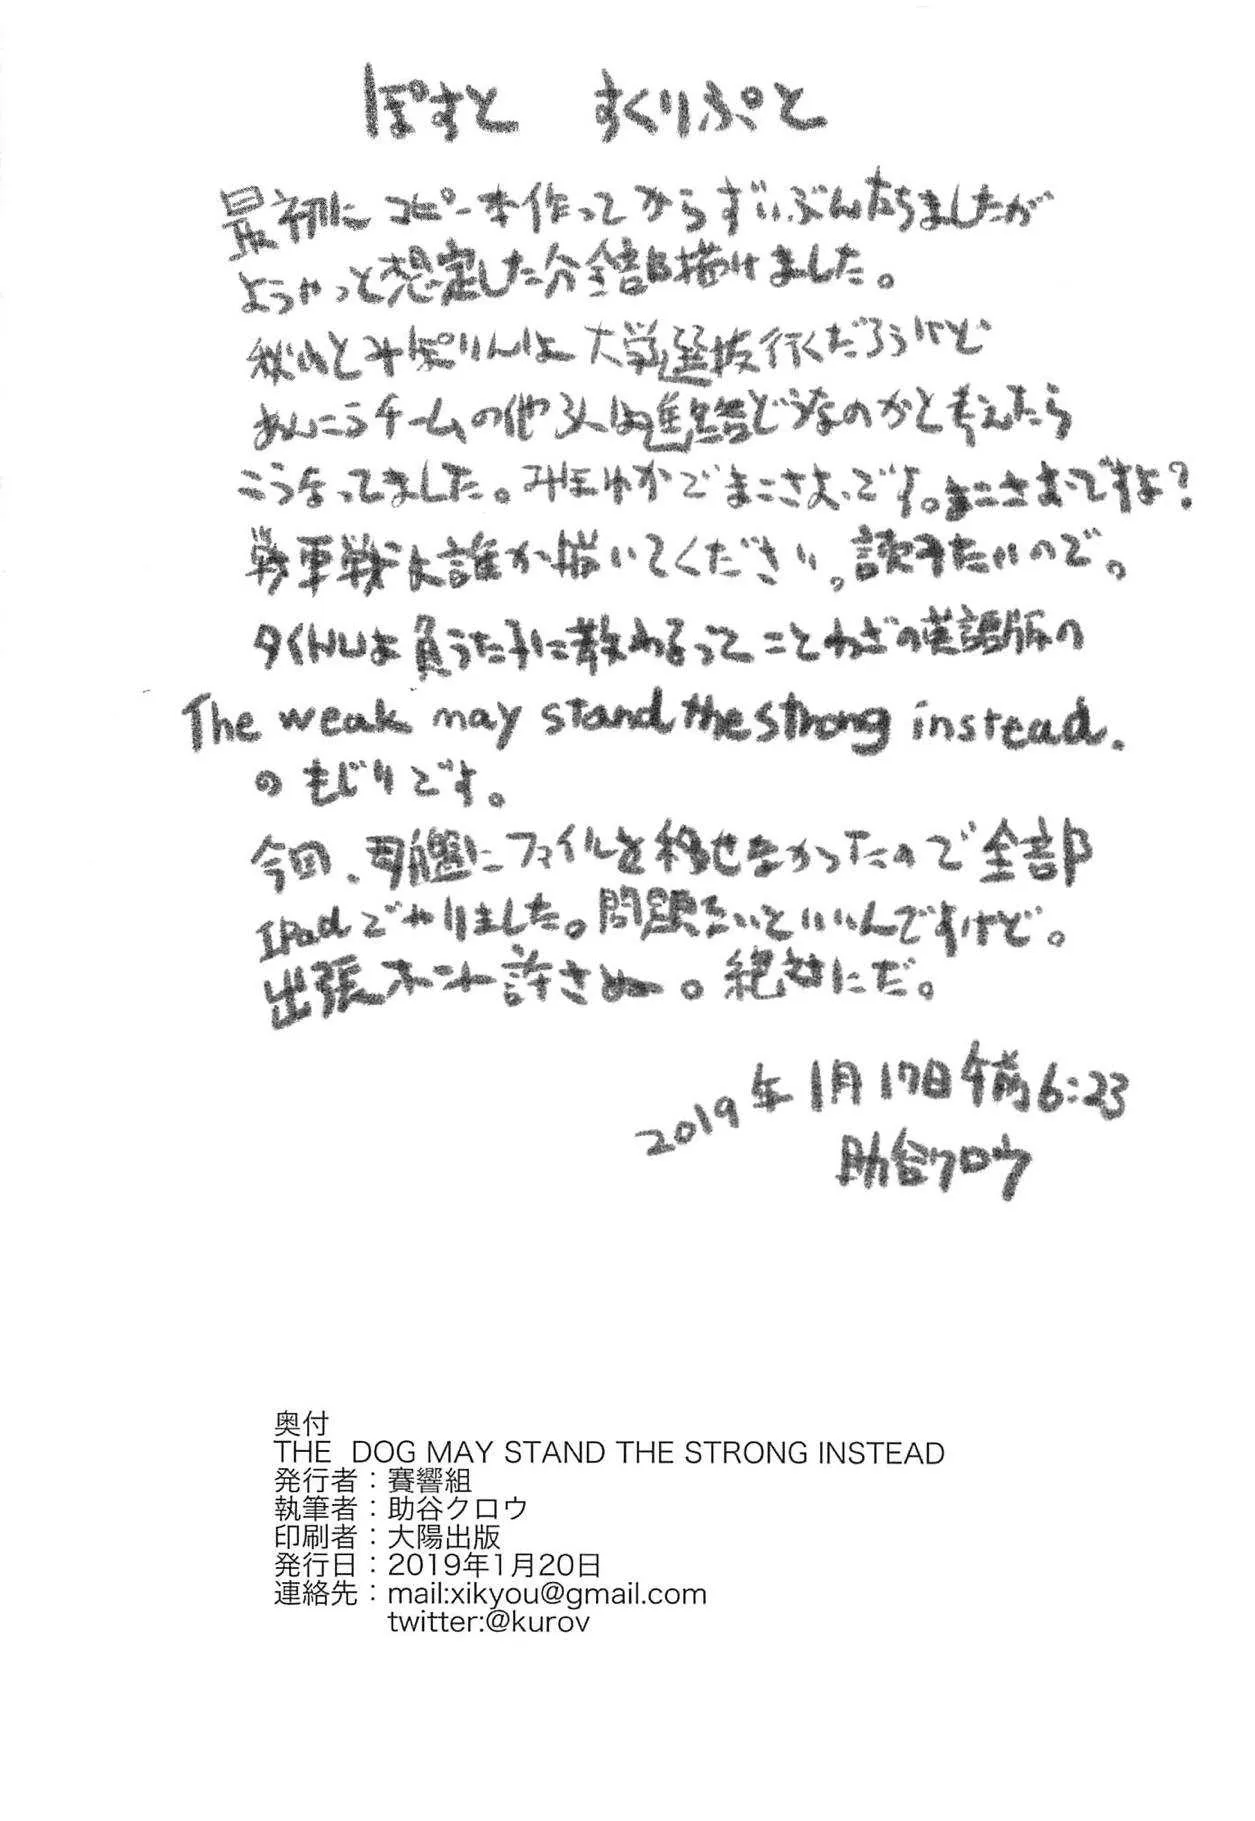 ぽすと すくりぷと
最初にコピー本作ってからずいぶんたちましたが
ようやっと想定した分全部描けました。
秋山とみぽりんは大学選抜行くだろうけど
あんこうチームの他3人は進路どうなのかと考えたら
こうなってました。みほゆかでまこさおです。まこさおですよ?
戦車戦は誰か描いてください。読みたいので。
タイトルは負うた子に教わるってことわざの英語版の
The weak may stand the strong instead.
のもじりです。
今回、母艦にファイルを移せなかったので全部
iPadでやりました。問題ないといいんですけど。
出張ホント許さぬー。絶対にだ。
2019年1月17日午前6:23
助谷クロウ
奥付
THE DOG MAY STAND THE STRONG INSTEAD
発行者：賽響組
執筆者：助谷クロウ
印刷者：大陽出版
発行日：2019年1月20日
連絡先：mail:xikyou@gmail.com
twitter:@kurov